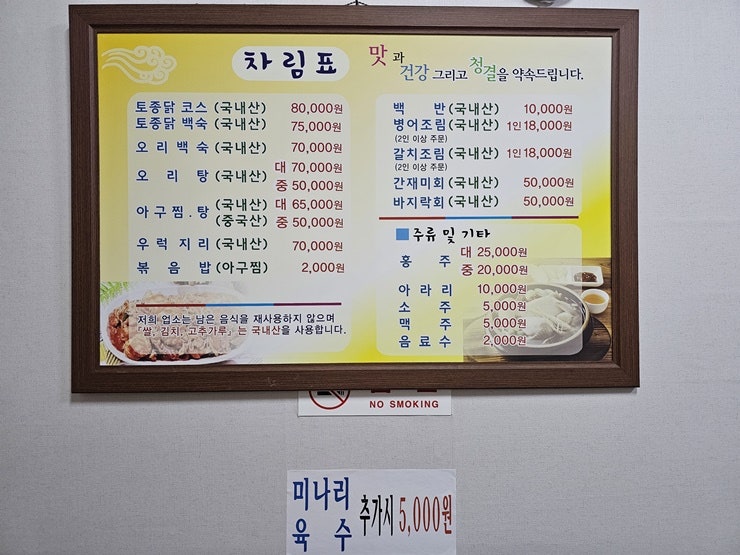 차림표
맛과 건강 그리고 청결을 약속드립니다.
토종닭 코스 (국내산) 80,000원
토종닭 백숙 (국내산) 75,000원
오리백숙 (국내산) 70,000원
오리탕 (국내산) 대 70,000원
중 50,000원
아구찜.탕 (국내산) 대 65,000원
(중국산) 중 50,000원
우럭지리 (국내산) 70,000원
볶음밥 (아구찜) 2,000원
저희 업소는 남은 음식을 재사용하지 않으며
「쌀, 김치, 고추가루」는 국내산을 사용합니다.
백반 (국내산) 10,000원
병어조림 (국내산) 1인 18,000원
(2인 이상 주문)
갈치조림 (국내산) 1인 18,000원
(2인 이상 주문)
간재미회 (국내산) 50,000원
바지락회 (국내산) 50,000원
주류 및 기타
홍주 대 25,000원
중 20,000원
아라리 10,000원
소주 5,000원
맥주 5,000원
음료수 2,000원
NO SMOKING
미나리
육수 추가시 5,000원